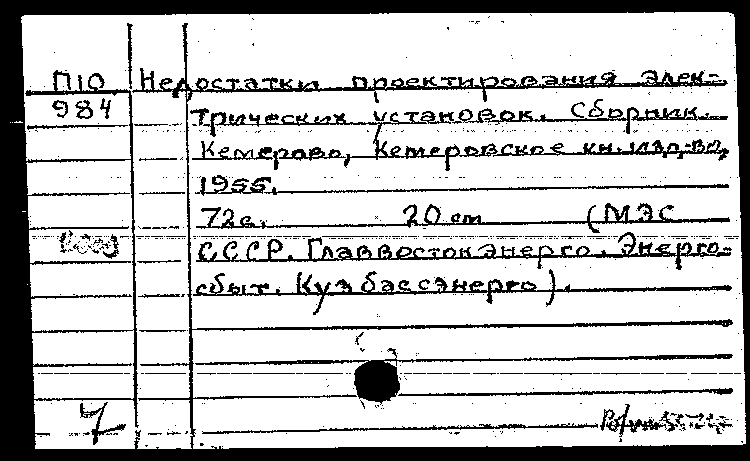 П10 Недостатки проектирования элек-
984 трических установок. Сборник.
Кемерово, Кемеровское кн. изд-во,
1955.
72 с. 20 см (МЭС
СССР. Главвостокэнерго. Энерго-
сбыт. Кузбассэнерго).
7